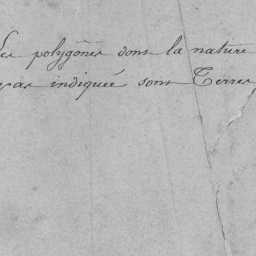 Les polygônes dont la nature
pas indiquée sont Terres